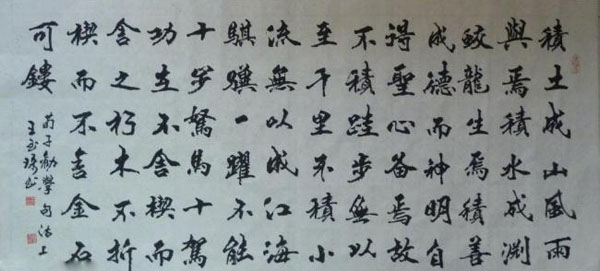 積土成山風雨
興焉積水成淵
蛟龍生焉積善
成德而神明自
得聖心备焉故
不積跬步無以
至千里不積小
流無以成江海
騏驥一躍不能
十步駑馬十駕
功在不舍楔而
舍之朽木不折
楔而不舍金石
可鏤
荀子勸學句沽上
王玉